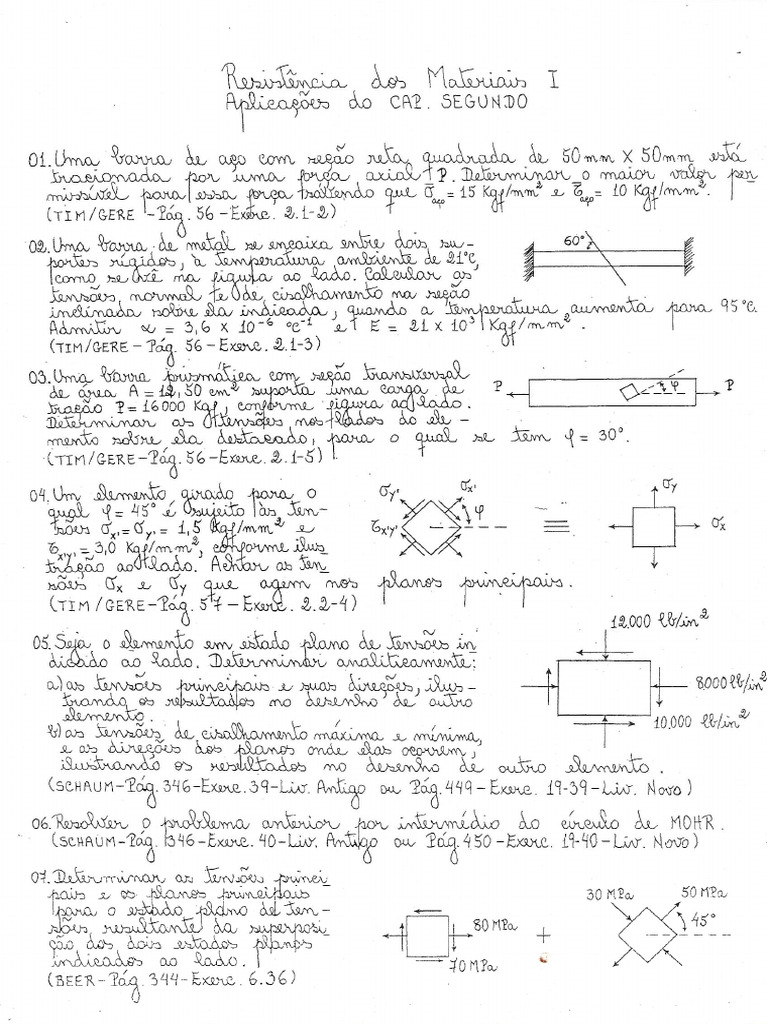 Resistência dos Materiais I
Aplicações do CAP. SEGUNDO
01. Uma barra de aço com seção reta quadrada de 50 mm X 50 mm está
tracionada por uma força axial P. Determinar o maior valor per
missível para essa força sabendo que σ̄aço = 15 Kgf/mm² e τ̄aço = 10 Kgf/mm².
(TIM/GERE - Pág. 56 - Exerc. 2.1-2)
02. Uma barra de metal se encaixa entre dois su-
portes rígidos, à temperatura ambiente de 21°C,
como se vê na figura ao lado. Calcular as
tensões, normal e de cisalhamento na seção
inclinada sobre ela indicada, quando a temperatura aumenta para 95°C.
Admitir α = 3,6 x 10⁻⁶ °C⁻¹ e E = 21 x 10³ Kgf/mm².
(TIM/GERE - Pág. 56 - Exerc. 2.1-3)
60°
03. Uma barra prismática com seção transversal
de área A = 12,50 cm² suporta uma carga de
tração P = 16000 Kgf, conforme figura ao lado.
Determinar as tensões nos lados do ele-
mento sobre ela destacado, para o qual se tem φ = 30°.
(TIM/GERE - Pág. 56 - Exerc. 2.1-5)
P φ P
04. Um elemento girado para o
qual φ = 45° é sujeito às ten-
sões σx' = σy' = 1,5 Kgf/mm² e
τx'y' = 3,0 Kgf/mm², conforme ilus
tração ao lado. Achar as ten
sões σx e σy que agem nos planos principais.
(TIM/GERE - Pág. 57 - Exerc. 2.2-4)
σy' σx' φ τx'y' ≡ σy σx
05. Seja o elemento em estado plano de tensões in
dicado ao lado. Determinar analiticamente:
a) as tensões principais e suas direções, ilus-
trando os resultados no desenho de outro
elemento.
b) as tensões de cisalhamento máxima e mínima,
e as direções dos planos onde elas ocorrem,
ilustrando os resultados no desenho de outro elemento.
(SCHAUM - Pág. 346 - Exerc. 39 - Liv. Antigo ou Pág. 449 - Exerc. 19-39 - Liv. Novo)
12.000 lb/in²
8000 lb/in²
10.000 lb/in²
06. Resolver o problema anterior por intermédio do círculo de MOHR.
(SCHAUM - Pág. 346 - Exerc. 40 - Liv. Antigo ou Pág. 450 - Exerc. 19-40 - Liv. Novo)
07. Determinar as tensões princi
pais e os planos principais
para o estado plano de ten-
sões resultante da superposi-
ção dos dois estados planos
indicados ao lado.
(BEER - Pág. 344 - Exerc. 6.36)
80 MPa
70 MPa
+
30 MPa 50 MPa
45°